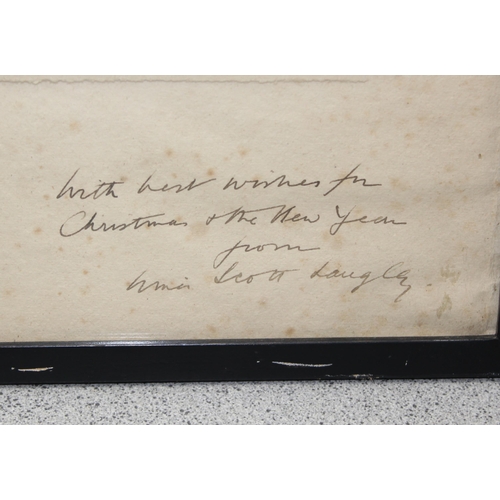 With best wishes for
Christmas & the New Year
from
Scott Langley.